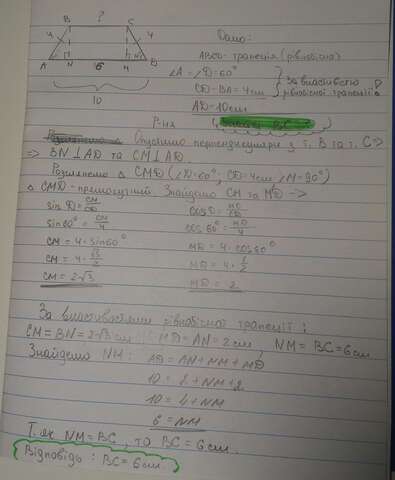 ?
B C
4 4
A N 6 M D
10
Дано:
ABCD - трапеція (рівнобісна)
∠A = ∠D = 60°
CD = BA = 4 см
За властивістю рівнобісної трапеції
AD = 10 см
BC - ?
Р-ня
Опустимо перпендикуляри з т. B та т. C =>
=> BN ⊥ AD та CM ⊥ AD.
Розглянемо Δ CMD (∠D = 60°; CD = 4 см; ∠M = 90°)
Δ CMD - прямокутний. Знайдемо CM та MD =>
sin D = CM/CD cos D = MD/CD
sin 60° = CM/4 cos 60° = MD/4
CM = 4 · sin 60° MD = 4 · cos 60°
CM = 4 · √3/2 MD = 4 · 1/2
CM = 2√3 MD = 2
За властивостями рівнобісної трапеції:
CM = BN = 2√3 см MD = AN = 2 см, NM = BC = 6 см
Знайдемо NM: AD = AN + NM + MD
10 = 2 + NM + 2
10 = 4 + NM
6 = NM
Т. як NM = BC, то BC = 6 см.
Відповідь: BC = 6 см.